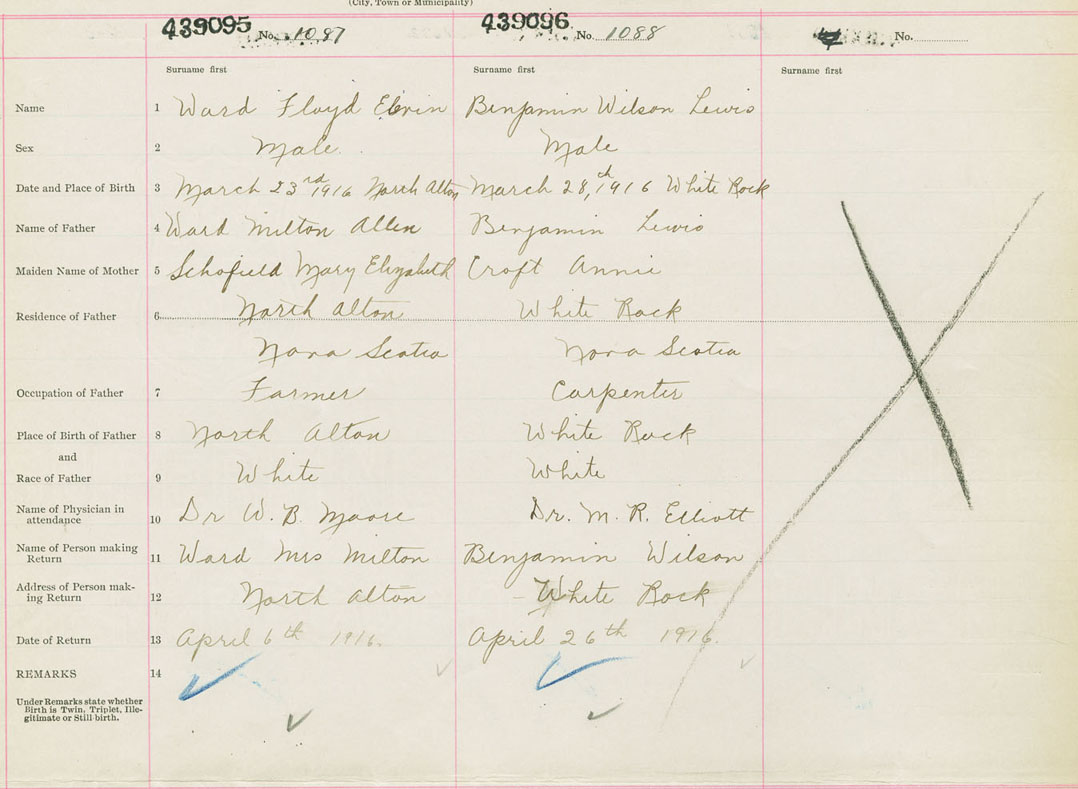 (City, Town or Municipality)
439095 No. 1087 439096 No. 1088 No.
Surname first Surname first Surname first
Name 1 Ward Floyd Benjamin Wilson Lewis
Sex 2 Male Male
Date and Place of Birth 3 March 23rd 1916 North Alton March 28th, 1916 White Rock
Name of Father 4 Ward Milton Allen Benjamin Lewis
Maiden Name of Mother 5 Schofield Mary Elizabeth Croft Annie
Residence of Father 6 North Alton White Rock
Nova Scotia Nova Scotia
Occupation of Father 7 Farmer Carpenter
Place of Birth of Father 8 North Alton White Rock
and
Race of Father 9 White White
Name of Physician in
attendance 10 Dr W. B. Moore Dr. M. R. Elliott
Name of Person making
Return 11 Ward Mrs Milton Benjamin Wilson
Address of Person mak-
ing Return 12 North Alton White Rock
Date of Return 13 April 6th 1916. April 26th 1916.
REMARKS 14
Under Remarks state whether
Birth is Twin, Triplet, Ille-
gitimate or Still-birth.